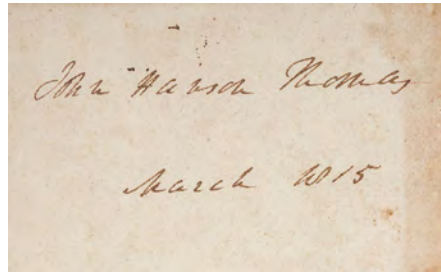 John Hanson Thomas
March 1815